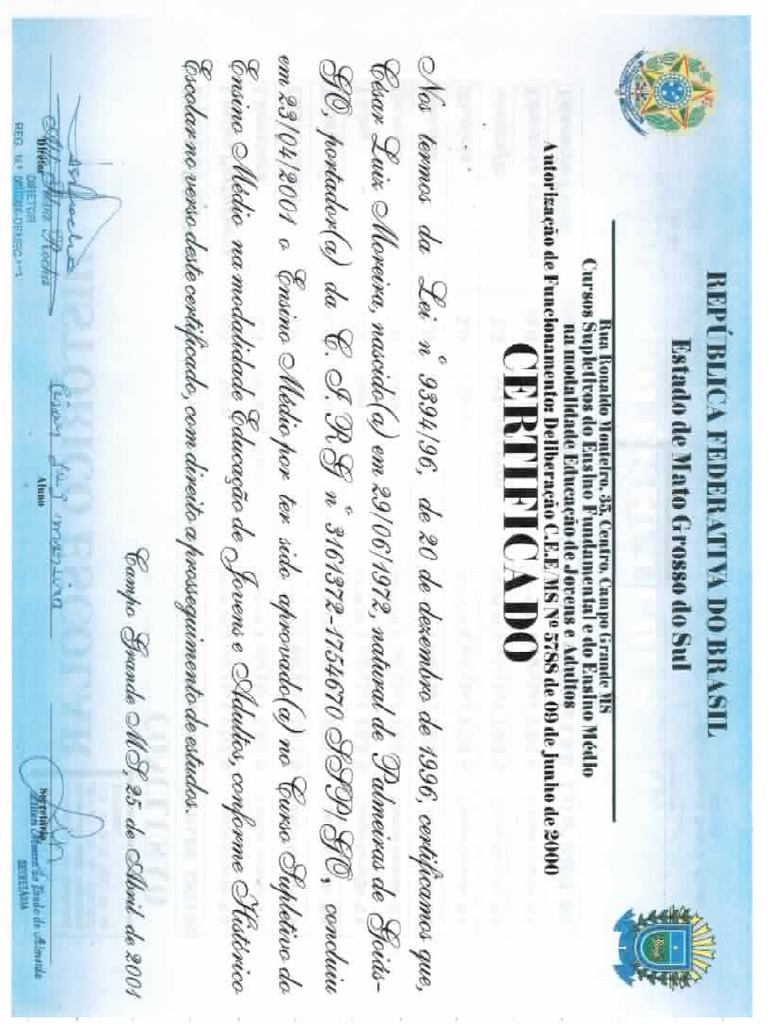 REPÚBLICA FEDERATIVA DO BRASIL
Estado de Mato Grosso do Sul
Rua Ronaldo Monteiro, 35, Centro, Campo Grande MS
Cursos Supletivos do Ensino Fundamental e do Ensino Médio
na modalidade Educação de Jovens e Adultos
Autorização de Funcionamento: Deliberação C.E.E/MS Nº 5788 de 09 de junho de 2000
CERTIFICADO
Nos termos da Lei nº 9394/96, de 20 de dezembro de 1996, certificamos que,
César Luiz Moreira, nascido(a) em 29/06/1972, natural de Palmeiras de Goiás-
GO, portador(a) da C. I. RG nº 3161372-1754670 SSP/GO, concluiu
em 23/04/2001 o Ensino Médio por ter sido aprovado(a) no Curso Supletivo do
Ensino Médio na modalidade Educação de Jovens e Adultos, conforme Histórico
Escolar no verso deste certificado, com direito a prosseguimento de estudos.
Campo Grande MS, 25 de Abril de 2001
Diretor
DIRETOR
REG. N.º
Aluno
Secretário
de Almeida
SECRETÁRIA
HISTÓRICO ESCOLAR